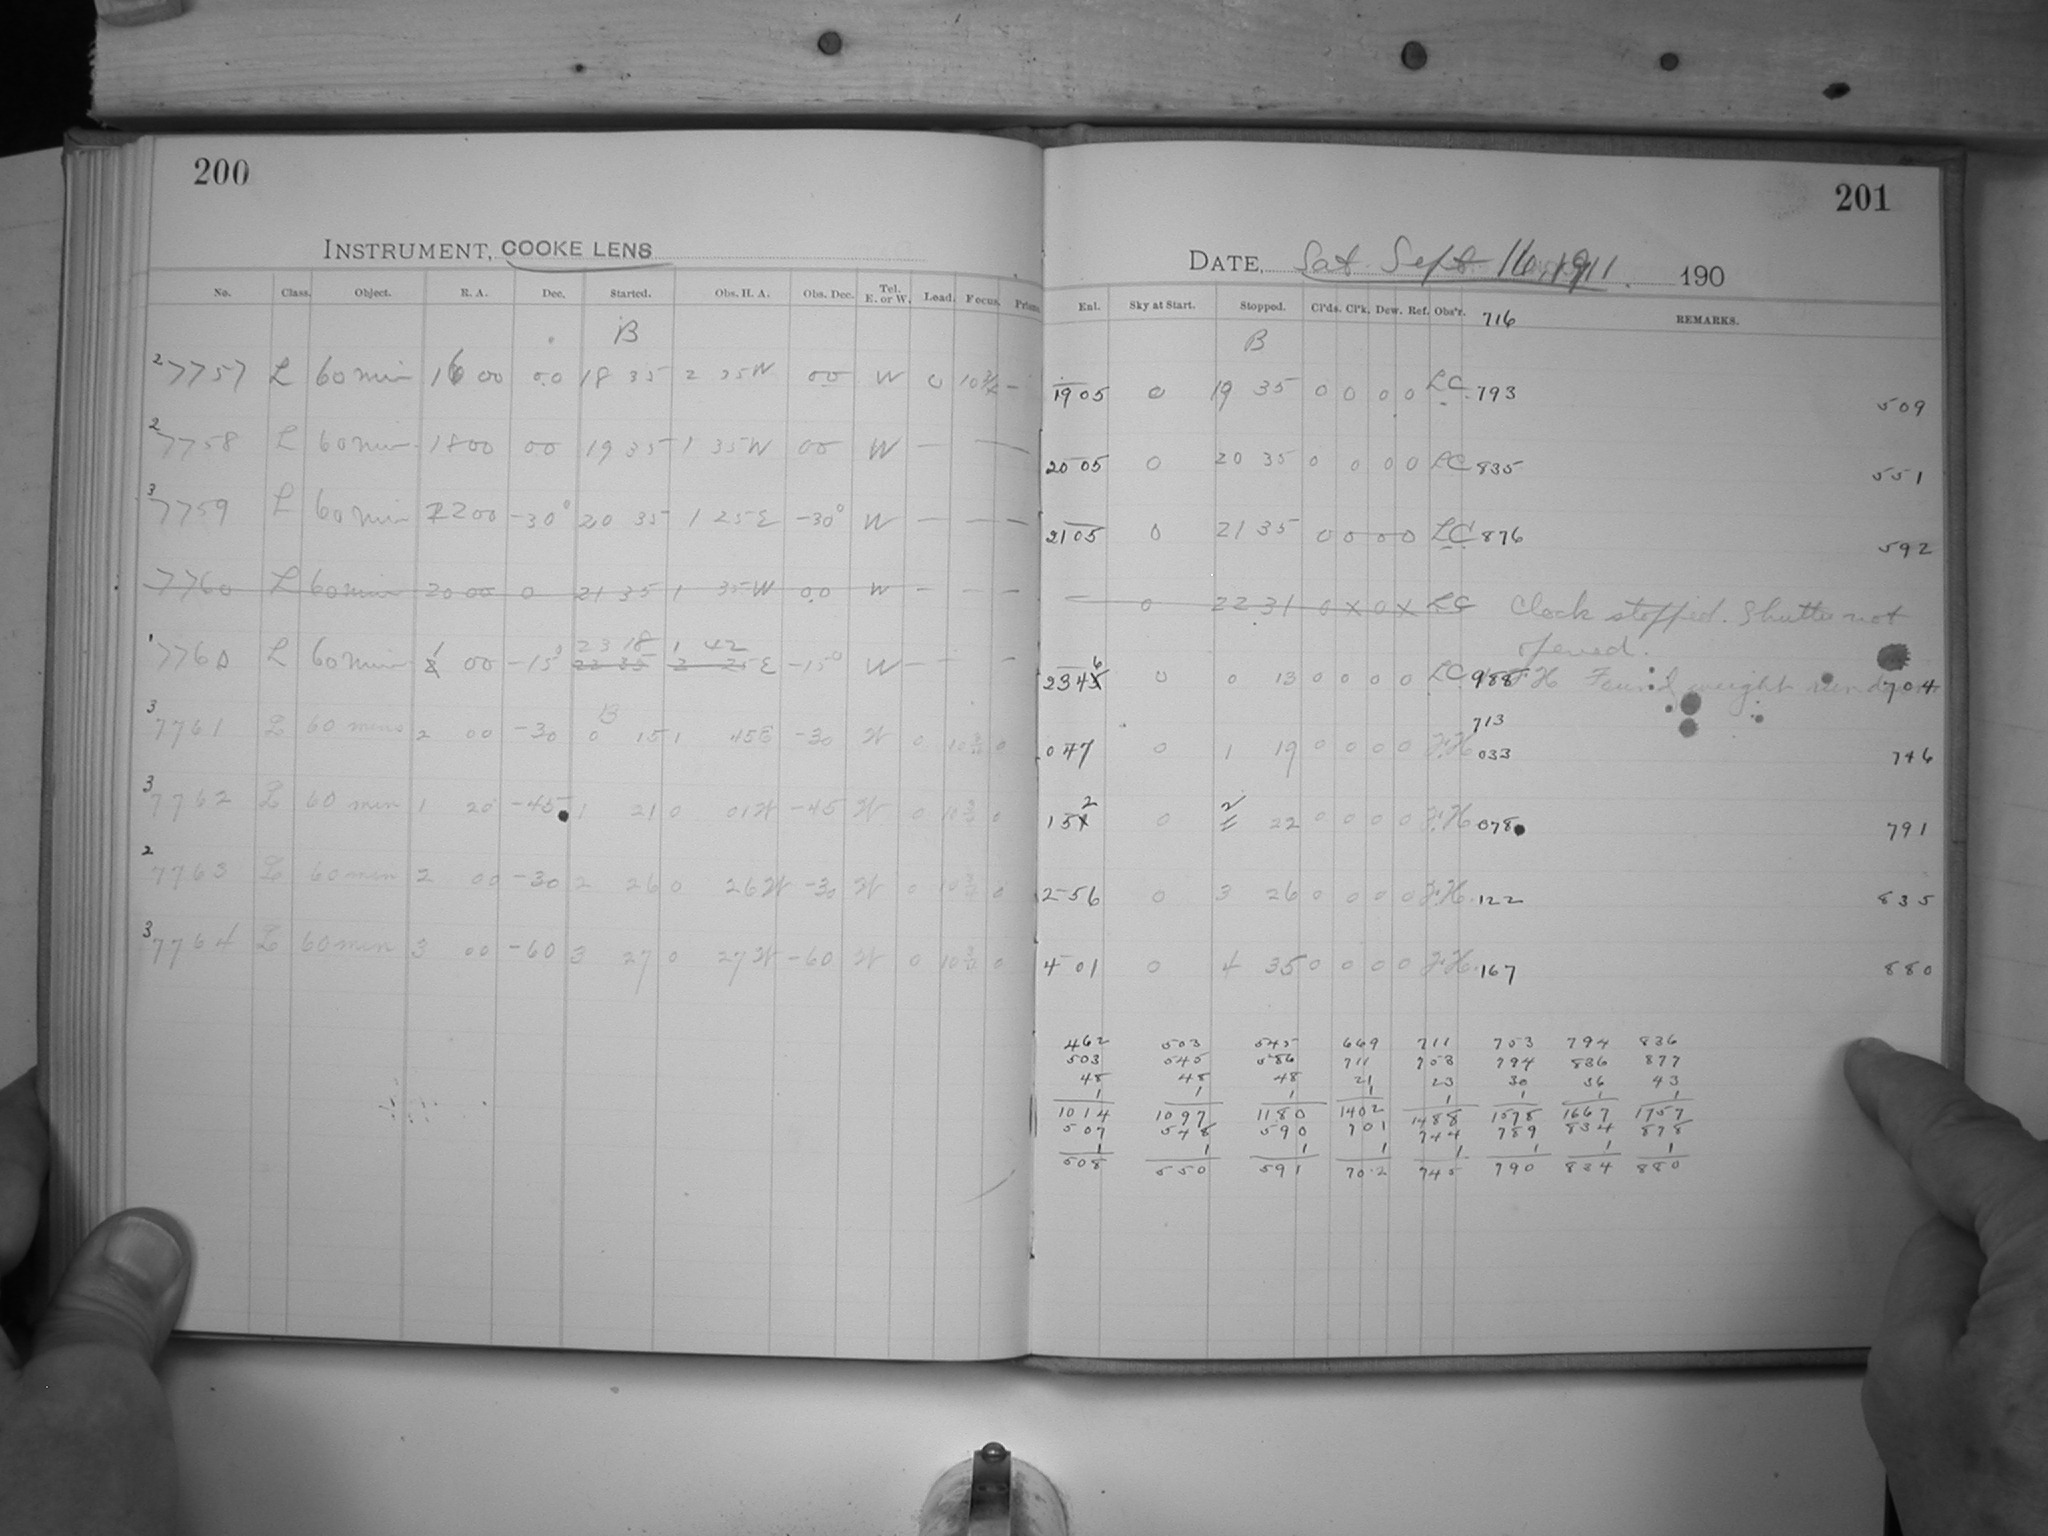 200
INSTRUMENT, COOKE LENS
No. Class. Object. R. A. Dec. Started. Obs. H. A. Obs. Dec. Tel. E. or W. Load. Focus.
B
2 7757 L 60 min 16 00 00 18 35 2 35W 00 W 0 10 —
2 7758 L 60 min. 18 00 00 19 35 1 35W 00 W — —
3 7759 L 60 min 2200 -30° 20 35 1 25E -30° W — — —
7760 L 60 min 20 00 0 21 35 1 35W 00 W — — —
23 18 1 42
1 7760 L 60 min 1 00 -15° 22 35 2 25E -15° W — — —
B
3 7761 L 60 mins 2 00 -30 0 15 1 45E -30 W 0 10 0
3 7762 L 60 min 1 20 -45 1 21 0 01W -45 W 0 10 0
2 7763 L 60 min 2 00 -30 2 26 0 26W -30 W 0 10 0
3 7764 L 60 min 3 00 -60 3 27 0 27W -60 W 0 10 0
201
DATE, Sat. Sept 16, 1911. 190
Enl. Sky at Start. Stopped. Cl'ds. Cl'k. Dew. Ref. Obs'r. 716 REMARKS.
B
19 05 0 19 35 0 0 0 0 LC. 793 509
20 05 0 20 35 0 0 0 0 LC 835 551
21 05 0 21 35 0 0 0 0 LC 876 592
— 0 22 31 0 X 0 X LC Clock stopped. Shutter not
opened.
23 46 0 0 13 0 0 0 0 LC. 988 F.H Found weight run down 704
713
0 47 0 1 19 0 0 0 0 F.H 033 746
1 52 0 2 22 0 0 0 0 F.H. 078 791
2 56 0 3 26 0 0 0 0 F.H. 122 835
4 01 0 4 35 0 0 0 0 F.H. 167 880
462 503 545 669 711 753 794 836
503 545 586 711 753 794 836 877
48 48 48 21 23 30 36 43
1 1 1 1 1 1 1 1
1014 1097 1180 1402 1488 1578 1667 1757
507 548 590 701 744 789 834 878
1 1 1 1 1 1 1 1
508 550 591 702 745 790 834 880